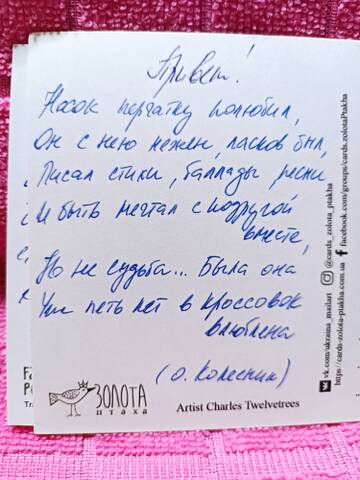 Привет!
Носок перчатку полюбил,
Он с нею нежен, ласков был,
Писал стихи, баллады, песни,
И быть мечтал с подругой
вместе,
Но не судьба... Была она
Уж петь лет в кроссовок
влюблена
(О. Колесник)
ЗОЛОТА
птаха
Artist Charles Twelvetrees
vk.com/ukraina_mailart
@cards_zolota_ptakha
https://cards-zolota-ptakha.com.ua
facebook.com/groups/cards.zolotaPtakha